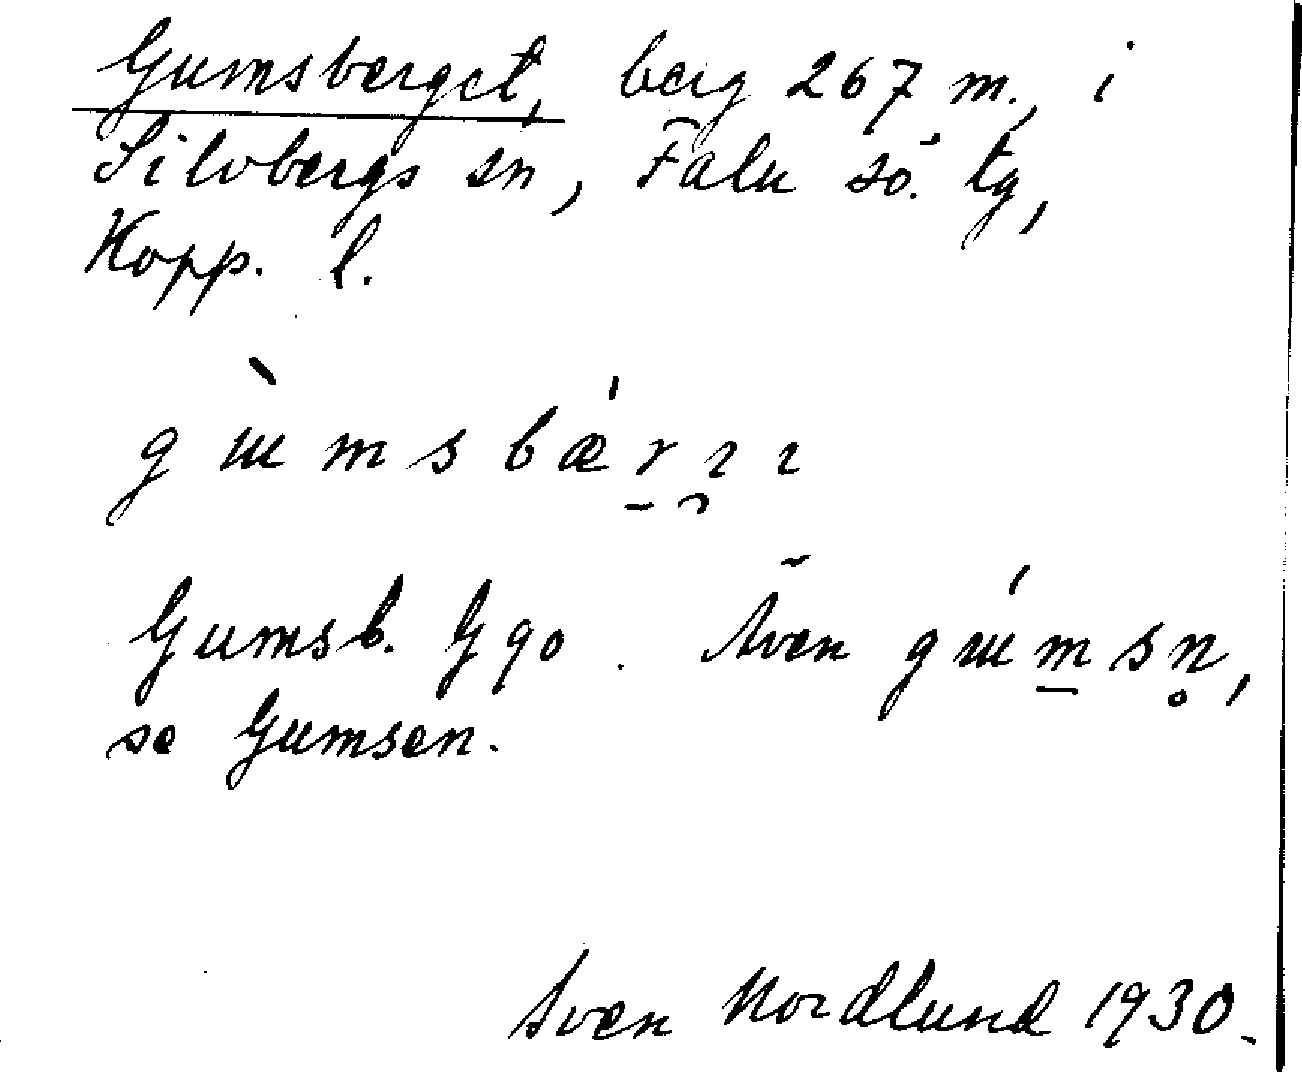 Gumsberget, berg 267 m., i
Silvbergs sn, Falu sö. tg,
Kopp. l.
Gumsb. Gqo. Även
se Gumsen.
Sven Nordlund 1930.